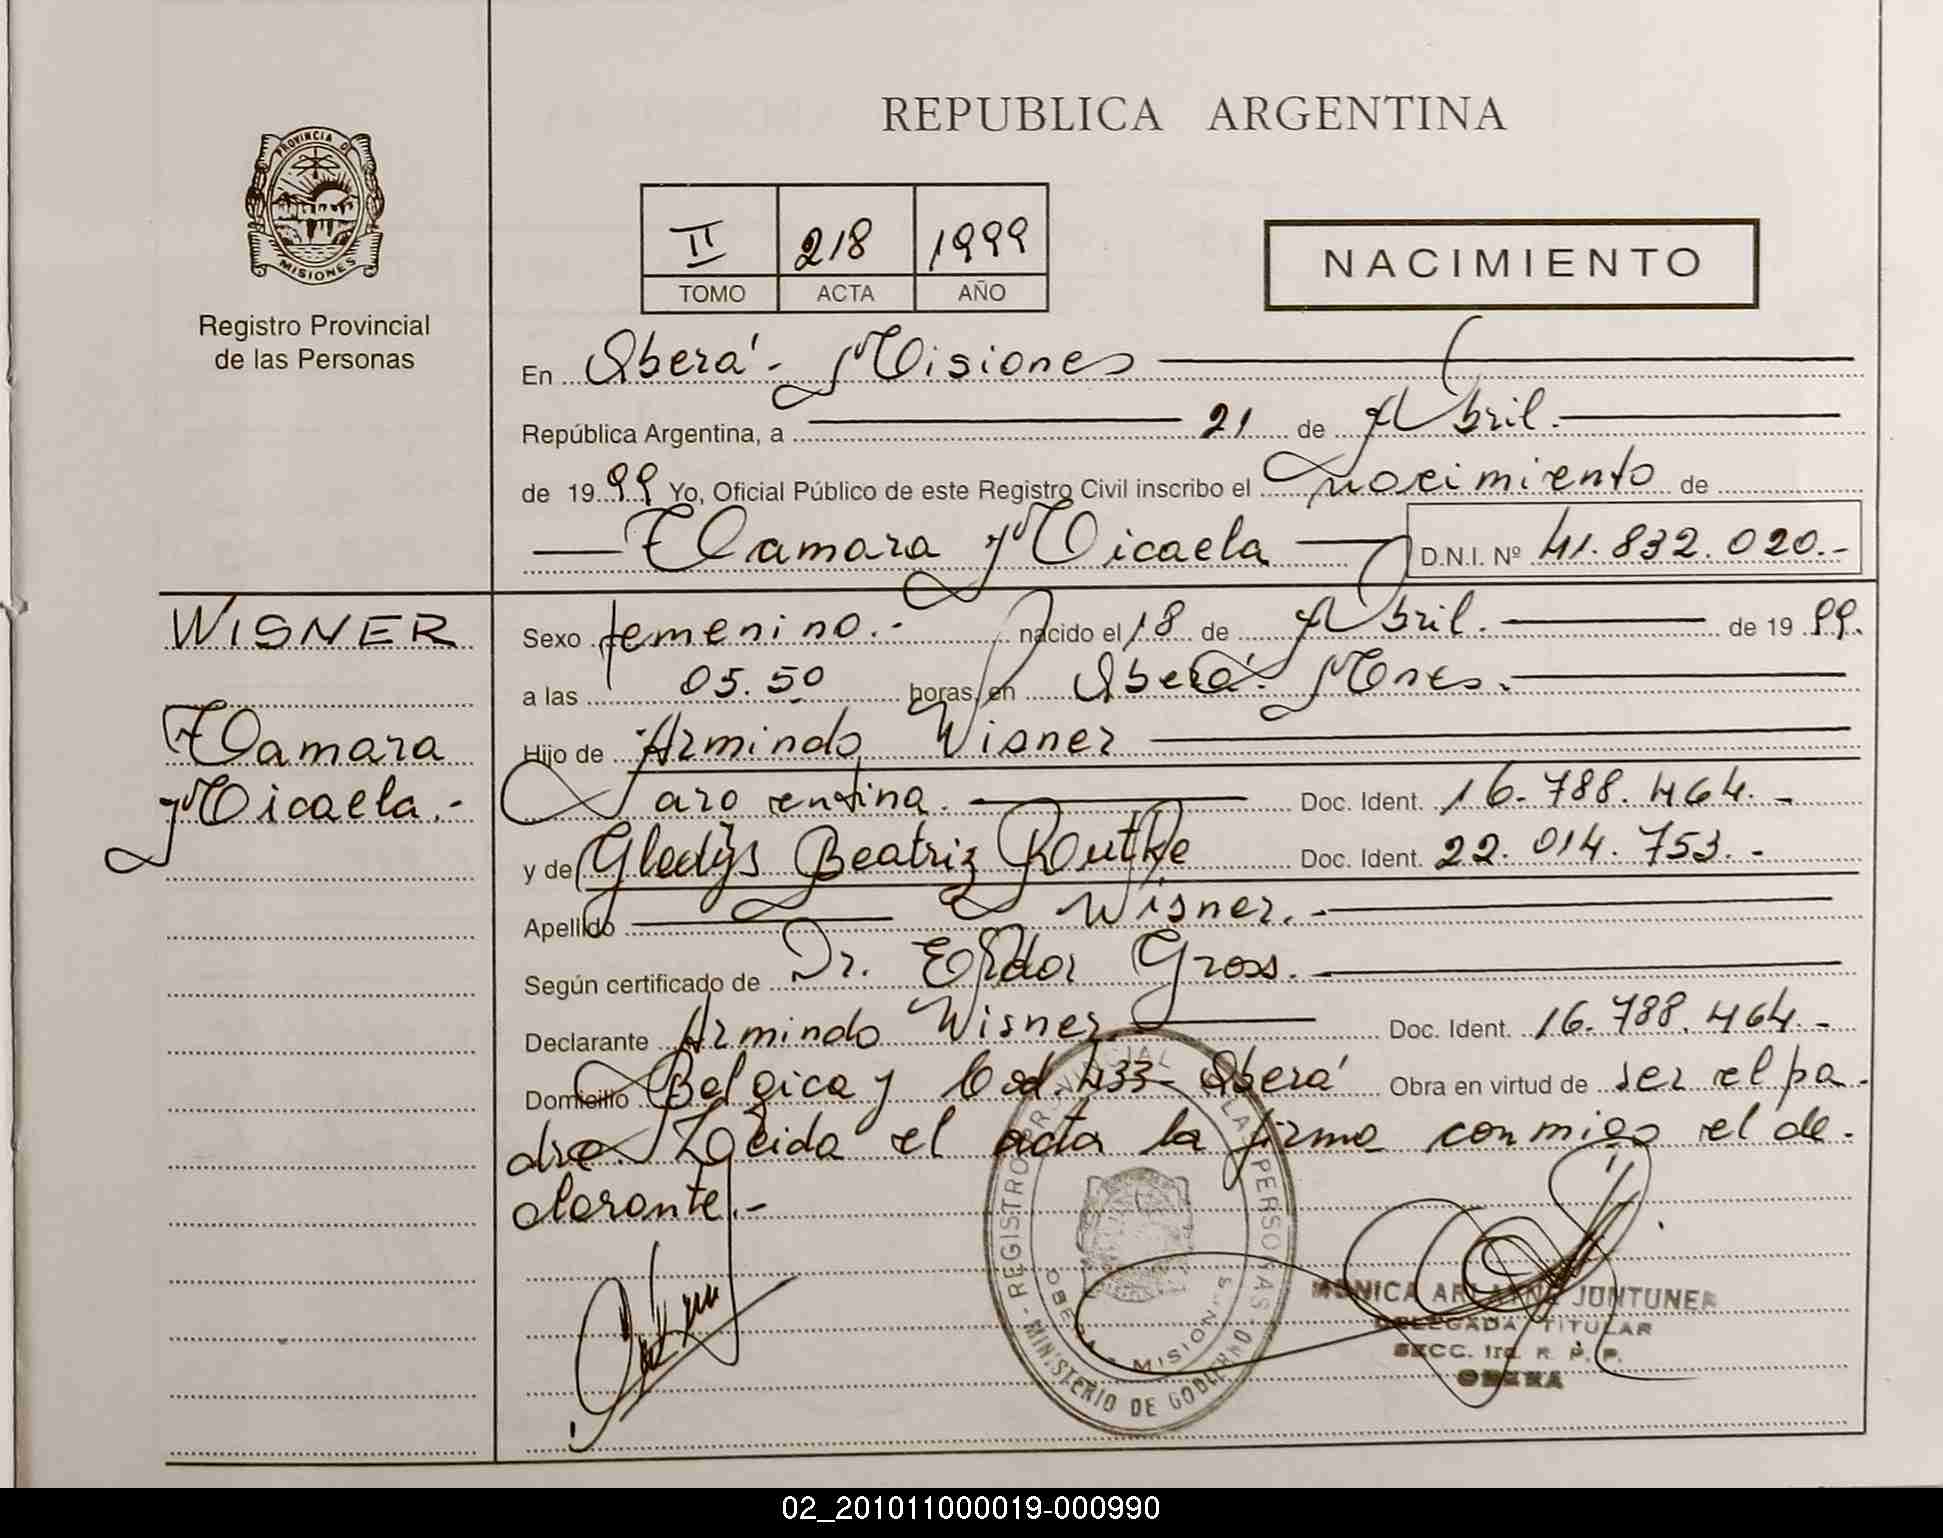 PROVINCIA DE
MISIONES
Registro Provincial
de las Personas
REPUBLICA ARGENTINA
II 218 1999
TOMO ACTA AÑO
NACIMIENTO
En Oberá - Misiones
República Argentina, a 21 de Abril.
de 1999 Yo, Oficial Público de este Registro Civil inscribo el nacimiento de
Tamara Micaela D.N.I. Nº 41.832.020.-
WISNER
Tamara
Micaela.-
Sexo femenino.- nacido el 18 de Abril. de 1999.
a las 05.50 horas, en Oberá. Mnes.
Hijo de Armindo Wisner
argentina. Doc. Ident. 16.788.464.-
y de Gladys Beatriz Doc. Ident. 22.014.753.-
Apellido Wisner.-
Según certificado de Dr. Gross.
Declarante Armindo Wisner Doc. Ident. 16.788.464.-
Domicilio Belgica y 433- Oberá Obra en virtud de ser el pa-
dre. Leida el acta la firma conmigo el de-
clarante.-
REGISTRO PROVINCIAL DE LAS PERSONAS
MINISTERIO DE GOBIERNO
OBERA MISIONES
MONICA JONTUNEN
DELEGADA TITULAR
SECC. 1ra. R. P. P.
OBERA
02_201011000019-000990